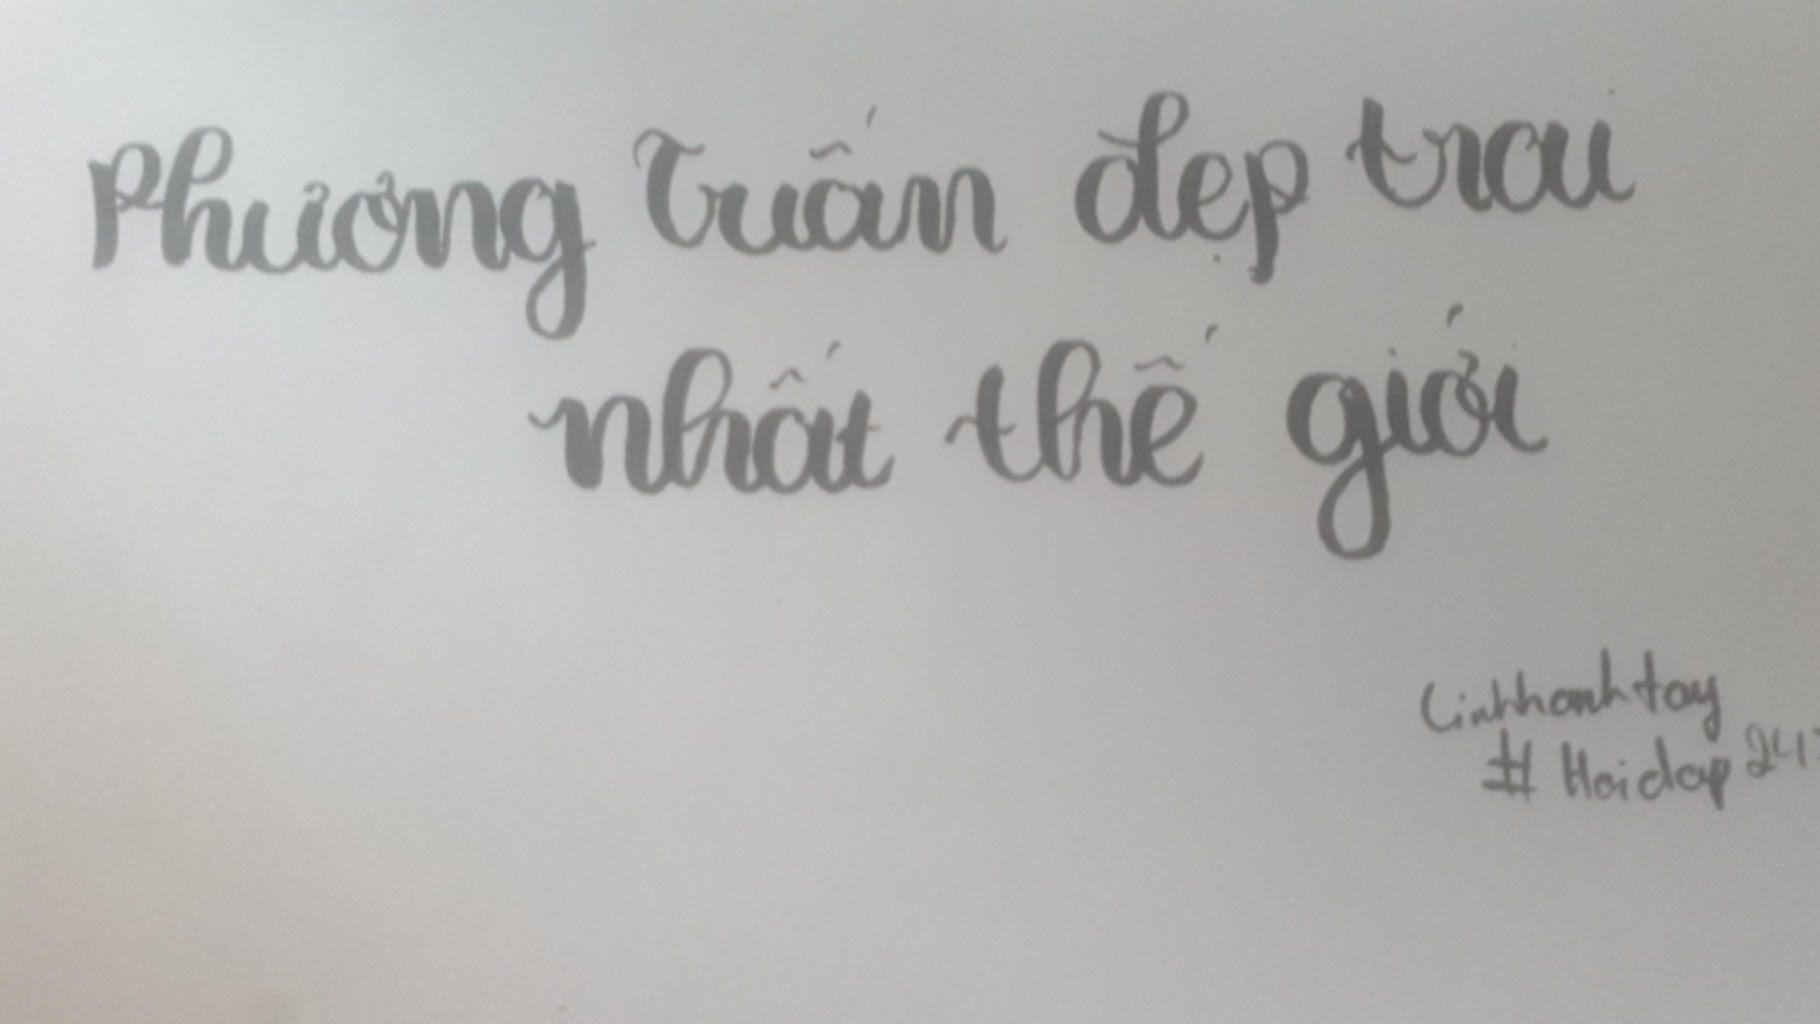 Phương Tuấn đẹp trai
nhất thế giới
Linhhanhtay
# Hoidap 24